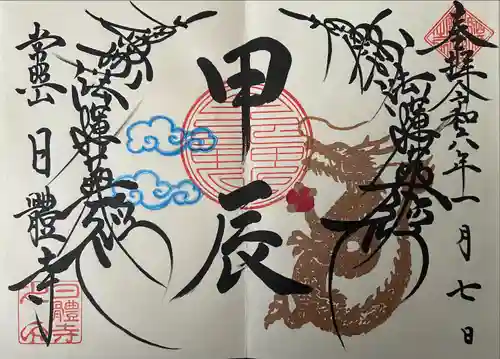 奉拝 令和六年一月七日
南無妙法蓮華経
甲辰
南無妙法蓮華経
常照山
日體寺